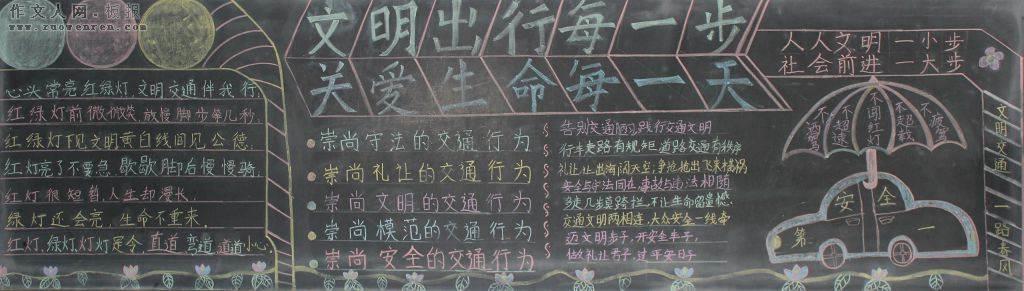 作文人网·板报
www.zuowenren.com
文明出行每一步
关爱生命每一天
人人文明一小步
社会前进一大步
心头常亮红绿灯,文明交通伴我行,
红绿灯前微微笑,放慢脚步等几秒,
红绿灯下见文明黄白线间见公德,
红灯亮了不要急,歇歇脚后慢慢骑,
红灯很短暂,人生却漫长,
绿灯还会亮,生命不重来,
红灯,绿灯,灯灯是令,直道 弯道 道道小心,
崇尚守法的交通行为
崇尚礼让的交通行为
崇尚文明的交通行为
崇尚模范的交通行为
崇尚安全的交通行为
告别交通陋习,践行交通文明
行车走路有规矩 道路交通有秩序
礼让,让出海阔天空;争抢,抢出飞来横祸
安全与守法同在,事故与违法相随
多走几步莫跨栏,不让生命留遗憾
交通文明两相连,大众安全一线牵
迈文明步子,开安全车子,
做礼让君子,过平安日子
不闯红灯
不超载
不疲驾
安全
第一
文明交通一路春风